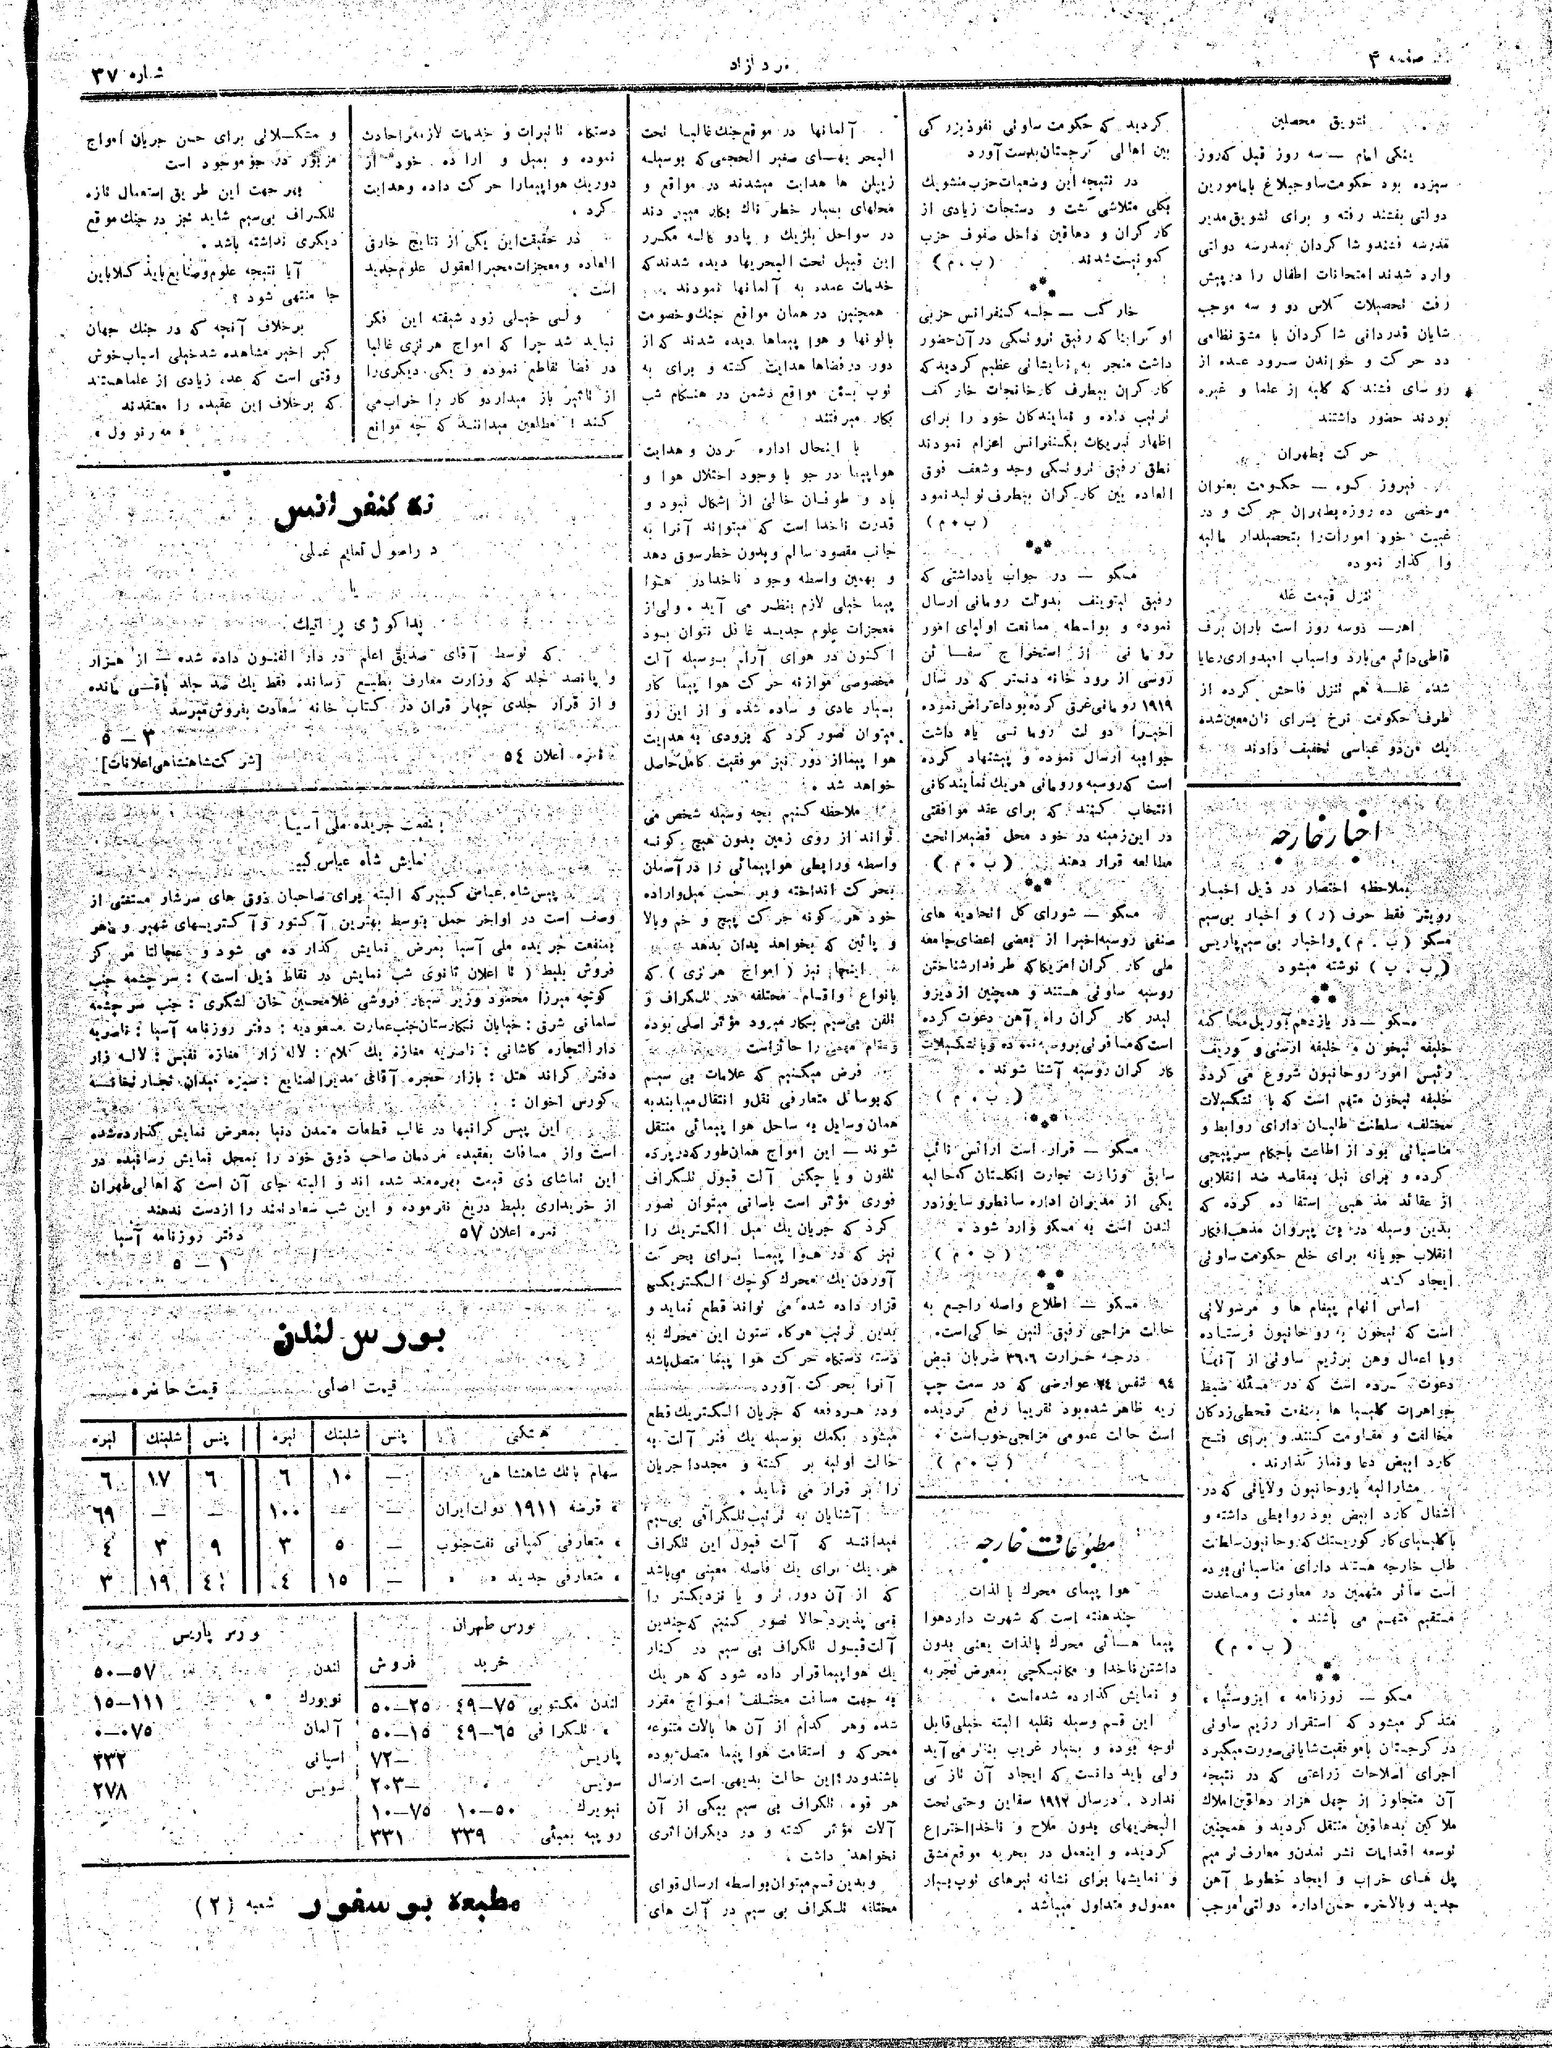 صفحه ۴
مرد آزاد
شماره ۳۷
تشویق محصلین
ینگی امام — سه روز قبل که روز
سیزده بود حکومت ساوجبلاغ با مامورین
دولتی بفشند رفته و برای تشویق مدیر
مدرسه فشند و شاگردان بمدرسه دولتی
وارد شدند امتحانات اطفال را در پیش
رفت تحصیلات کلاس دو و سه موجب
شایان قدردانی شاگردان با مشق نظامی
دد حرکت و خواندن سرود عده از
روسای فشند که کلیه از علما و غیره
بودند حضور داشتند
حرکت بطهران
فیروز کوه — حکومت بعنوان
مرخصی ده روزه بطهران حرکت و در
غیبت خود امورات را بتحصیلدار مالیه
وا گذار نموده
تنزل قیمت غله
اهر — دوسه روز است باران برف
قاطی دائم می‌بارد و اسباب امیدواری رعایا
شده غلــه هم تنزل فاحش کرده از
طرف حکومت نرخ برای نان معین شده
یك من دو عباسی تخفیف دادند
اخبار خارجه
بملاحظه اختصار در ذیل اخبار
رویتر فقط حرف (ر) و اخبار بی‌سیم
مسکو (ب . م) و اخبار بی سیم پاریس
(ب . پ) نوشته میشود
مسکو — در یازدهم آوریل محاکمه
خلیفه تیخون و خلیفه ارسنی و کوریف
رئیس امور روحانیون شروع می گردد
خلیفه تیخون متهم است که با تشکیلات
مختلفه سلطنت طلبان دارای روابط و
مناسباتی بود از اطاعت باحکام سرپیچی
کرده و برای نیل بمقاصد ضد انقلابی
از عقائد مذهبی استفاده کرده که
بدین وسیله در بین پیروان مذهب افکار
انقلاب جویانه برای خلع حکومت ساوتی
ایجاد کند
اساس اتهام پیغام ها و مرسولاتی
است که تیخون به روحانیون فرستاده
و با اعمال وهن برژیم ساوتی از آنها
دعوت کرده است که در مسئله ضبط
جواهرات کلیسیا ها بمنفعت قحطی زدگان
مخالفت و مقاومت کنند و برای فتح
کارد ابیض دعا و نماز گذارند .
مشارالیه با روحانیون ولایاتی که در
اشغال کارد ابیض بود روابطی داشته و
با کلیسیای کار کوریستك که روحانیون سلطنت
طلب خارجه هستند دارای مناسباتی بوده
است سائر متهمین در معاونت و مساعدت
مستقیم متهم می باشند .
(ب . م)
مسکو — روزنامه « ایزوستیا »
متذکر میشود که استقرار رژیم ساوتی
در گرجستان با موفقیت شایانی صورت میگیرد
اجرای اصلاحات زراعتی که در نتیجه
آن متجاوز از چهل هزار دهاقین املاك
ملاکین بدهاقین منتقل گردید و همچنین
توسعه اقدامات نشر تمدن و معارف ترمیم
پل های خراب و ایجاد خطوط آهن
جدید و بالاخره حسن اداره دولتی موجب
گردید که حکومت ساوتی نفوذ بزرگی
بین اهالی گرجستان بدست آورد
در نتیجه این وضعیات حزب منشویك
بکلی متلاشی گشت و دستجات زیادی از
کارگران و دهاقین داخل صفوف حزب
کمونیست شدند . (ب . م)
خارکف — جلسه کنفرانس حزبی
اوکراینا که رفیق تروتسکی در آن حضور
داشت منجر به نمایشاتی عظیم گردید که
کارگران بیطرف کارخانجات خارکف
ترتیب داده و نمایندگان خود را برای
اظهار تبریکات بکنفرانس اعزام نمودند
نطق رفیق تروتسکی وجد و شعف فوق
العاده بین کارگران بیطرف تولید نمود
(ب . م)
مسکو — در جواب یادداشتی که
رفیق لیتوینف بدولت رومانی ارسال
نموده و بواسطه ممانعت اولیای امور
رومانی از استخراج سفائن
روسی از رودخانه دنستر که در سال
۱۹۱۹ رومانی غرق کرده بود اعتراض نموده
اخیراً دولت رومانی یادداشت
جوابیه ارسال نموده و پیشنهاد کرده
است که روسیه و رومانی هر یك نمایندگانی
انتخاب کنند که برای عقد موافقتی
در این زمینه در خود محل قضیه را تحت
مطالعه قرار دهند (ب . م)
مسکو — شورای کل اتحادیه های
صنفی روسیه اخیرا از بعضی اعضای جامعه
ملی کارگران امریکا که طرفدار شناختن
روسیه ساوتی هستند و همچنین از دیزو
لیدر کارگران راه آهن دعوت کرده
است که مسافرتی بروسیه نموده و با تشکیلات
کارگران روسیه آشنا شوند .
(ب . م)
مسکو — قرار است ارانس نائب
سابق وزارت تجارت انگلستان که حالیه
یکی از مدیران اداره سانطروسایوز در
لندن است به مسکو وارد شود .
(ب . م)
مسکو — اطلاع واصله راجع به
حالت مزاجی رفیق لنین حاکی است .
درجه حرارت ۳۶۰۶ ضربان نبض
۹۴ تنفس ۲۴ عوارضی که در سمت چپ
ریه ظاهر شده بود تقریبا رفع گردیده
است حالت عمومی مزاجی خوب است .
(ب . م)
مطبوعات خارجه
هوا پیمای محرك بالذات
چند هفته است که شهرت دارد هوا
پیما هائی محرك بالذات یعنی بدون
داشتن ناخدا و مکانیکچی بمعرض تجربه
و نمایش گذارده شده است .
این قسم وسیله نقلیه البته خیلی قابل
توجه بوده و بسیار غریب بنظر می آید
ولی باید دانست که ایجاد آن تازگی
ندارد . در سال ۱۹۱۲ سفاین و حتی تحت
البحریهای بدون ملاح و ناخدا اختراع
گردیده و اینعمل در بحریه موقع مشق
و نمایشها برای نشانه تیرهای توپ بسیار
معمول و متداول میباشد .
آلمانها در موقع جنك غالبا تحت
البحر یهای صغیر الحجمی که بوسیله
زیپلن ها هدایت میشدند در مواقع و
محلهای بسیار خطر ناك بکار میبردند
در سواحل بلژیك و پادوکاله مکرر
این قبیل تحت البحریها دیده شدند که
خدمات عمده به آلمانها نمودند .
همچنین در همان مواقع جنك و خصومت
بالونها و هوا پیماها دیده شدند که از
دور در فضاها هدایت گشته و برای به
توپ بستن مواقع دشمن در هنگام شب
بکار میرفتند
با اینحال اداره کردن و هدایت
هواپیما در جو با وجود اختلال هوا و
باد و طوفان خالی از اشکال نبود و
قدرت ناخدا است که میتواند آنرا به
جانب مقصود سالم و بدون خطر سوق دهد
و بهمین واسطه وجود ناخدا در هوا
پیما خیلی لازم بنظر می آید . ولی از
معجزات علوم جدید غافل نتوان بود
اکنون در هوای آرام بوسیله آلت
مخصوصی موازنه حرکت هوا پیما کار
بسیار عادی و ساده شده و از این رو
میتوان تصور کرد که بزودی به هدایت
هوا پیما از دور نیز موفقیت کامل حاصل
خواهد شد .
ملاحظه کنیم بچه وسیله شخص می
تواند از روی زمین بدون هیچ گونه
واسطه و رابطی هواپیمائی را در آسمان
بحرکت انداخته و بر حسب میل و اراده
خود هر گونه حرکت پیچ و خم و بالا
و پائین که بخواهد بدان بدهد .
اینجا نیز (امواج هرتزی) که
بانواع و اقسام مختلفه در تلگراف و
تلفن بی‌سیم بکار میرود مؤثر اصلی بوده
و مقام مهمی را حائز است
فرض میکنیم که علامات بی سیم
که بوسائل متعارفی نقل و انتقال می‌یابند به
همان وسایل به ساحل هوا پیمائی منتقل
شوند — این امواج همان طور که در پرده
تلفون و یا چکش آلت قبول تلگراف
فوری مؤثر است باسانی میتوان تصور
کرد که جریان یك مبل الکتریك را
نیز که در هوا پیما برای بحرکت
آوردن یك محرك کوچك الکتریکی
قرار داده شده می تواند قطع نماید و
بدین ترتیب هر گاه ستون این محرك به
دسته دستگاه حرکت هوا پیما متصل باشد
آنرا بحرکت آورد .
و در هر دفعه که جریان الکتریك قطع
میشود بکمك بوسیله یك فنر آلت به
حالت اولیه بر گشته و مجددا جریان
را بر قرار می نماید .
آشنایان به ترتیب تلگرافی بی‌سیم
میدانند که آلت قبول این تلگراف
هر یك برای یك فاصله معینی می‌باشد
که از آن دورتر و یا نزدیکتر را
نمی پذیرد حالا تصور کنیم که چندین
آلت قبول تلگراف بی سیم در کنار
یك هواپیما قرار داده شود که هر یك
به جهت مسافت مختلف امواج مقرر
شده و هر کدام از آن ها بالات متنوعه
محرکه و استقامت هوا پیما متصل بوده
باشند و در این حالت بدیهی است ارسال
هر قوه تلگراف بی سیم بیکی از آن
آلات مؤثر گشته و در دیگران اثری
نخواهد داشت .
و بدین قسم میتوان بواسطه ارسال قوای
مختلفه تلگراف بی سیم در آلت های
دستگاه تاثیرات و خدمات لازمه را حادث
نموده و بمیل و اراده خود از
دور یك هواپیما را حرکت داده و هدایت
کرد .
در حقیقت این یکی از نتایج خارق
العاده و معجزات محیر العقول علوم جدید
است
ولی خیلی زود شیفته این فکر
نباید شد چرا که امواج هرتزی غالبا
در فضا تقاطع نموده و یکی دیگری را
از تاثیر باز میدارد و کار را خراب می
کند ! مطلعین میدانند که چه موانع
و مشکلاتی برای حسن جریان امواج
مزبور در جو موجود است
بهر جهت این طریق استعمال تازه
تلگراف بی‌سیم شاید نیز در جنك موقع
دیگری نداشته باشد .
آیا نتیجه علوم و صنایع باید کلا باین
جا منتهی شود ؟
برخلاف آنچه که در جنك جهان
گیر اخیر مشاهده شد خیلی اسباب خوش
وقتی است که عده زیادی از علما هستند
که برخلاف این عقیده را معتقدند
نه کنفرانس
در اصول تعلیم عملی
یا
پداگوژی پراتیك
که توسط آقای صدیق اعلم در دار الفنون داده شده — از هزار
و پانصد جلد که وزارت معارف بطبع رسانده فقط یك صد جلد باقی مانده
و از قرار جلدی چهار قران در کتاب خانه سعادت بفروش میرسد
۳ — ۵
نمره اعلان ۵۴ [شرکت شاهنشاهی اعلانات]
بمنفعت جریده ملی آسیا
نمایش شاه عباس کبیر
پیس شاه عباس کبیر که البته برای صاحبان ذوق های سرشار مستغنی از
وصف است در اواخر حمل توسط بهترین آکتور و آکتریسهای شهیر و ماهر
بمنفعت جریده ملی آسیا بمعرض نمایش گذارده می شود و عجالتا مرکز
فروش بلیط (تا اعلان ثانوی شب نمایش در نقاط ذیل است) : سرچشمه جنب
کوچه میرزا محمود وزیر سیگار فروشی غلامحسین خان لشگری : جنب سرچشمه
سلمانی شرق : خیابان نگارستان جنب عمارت مسعودیه : دفتر روزنامه آسیا : ناصریه
دارالتجاره کاشانی : ناصریه مغازه یك کلام : لاله زار مغازه نفیس : لاله زار
دفتر گراند هتل : بازار حجره آقای مدیر الصنایع : سبزه میدان تجارتخانه
کورس اخوان :
این پیس کرانبها در غالب قطعات متمدن دنیا بمعرض نمایش گذارده شده
است و از مسافات بعیده مردمان صاحب ذوق خود را بمحل نمایش رسانیده در
این تماشای ذی قیمت بهره‌مند شده اند و البته جای آن است که اهالی طهران
از خریداری بلیط دریغ نفرموده و این شب سعادتمند را از دست ندهند
نمره اعلان ۵۷ دفتر روزنامه آسیا
۱ — ۵
بورس لندن
قیمت اصلی قیمت حاضره
هشگی پنس شلینك لیره پنس شلینك لیره
سهام بانك شاهنشاهی — ۱۰ ۶ ۶ ۱۷ ۶
« قرضه ۱۹۱۱ دولت ایران — — ۱۰۰ — — ۶۹
« متعارفی کمپانی نفت جنوب — ۵ ۳ ۹ ۳ ۴
« متعارفی جدید « « — ۱۵ ۴ ۱۹ ۳
بورس طهران
خرید فروش
لندن مکتوبی ۷۵–۴۹ ۲۵–۵۰
« تلگرافی ۶۵–۴۹ ۱۵–۵۰
پاریس —۷۲
سویس —۲۰۳
نیویرك ۵۰–۱۰ ۷۵–۱۰
روپیه بمبئی ۳۳۹ ۳۳۱
بورس پاریس
لندن ۵۷–۵۰
نویورك ۱۱۱–۱۵
آلمان ۰۷۵–۰
اسپانی ۲۳۲
سویس ۲۷۸
مطبعه بوسفور شعبه (۲)